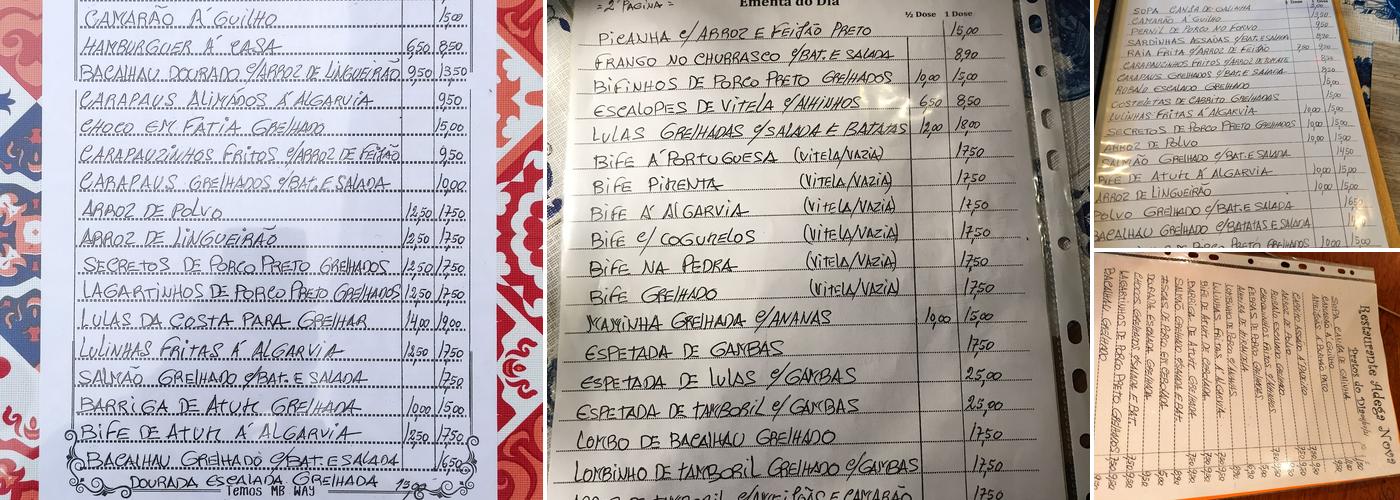 CAMARÃO Á GUILHO 15,00
HAMBURGUER Á CASA 6,50 8,50
BACALHAU DOURADO C/ARROZ DE LINGUEIRÃO 9,50 13,50
CARAPAUS ALIMADOS Á ALGARVIA 9,50
CHOCO EM FATIA GRELHADO 15,00
CARAPAUZINHOS FRITOS C/ARROZ DE FEIJÃO 9,50
CARAPAUS GRELHADOS C/BAT.E SALADA 10,00
ARROZ DE POLVO 12,50 17,50
ARROZ DE LINGUEIRÃO 12,50 17,50
SECRETOS DE PORCO PRETO GRELHADOS 12,50 17,50
LAGARTINHOS DE PORCO PRETO GRELHADOS 12,50 17,50
LULAS DA COSTA PARA GRELHAR 14,00 19,00
LULINHAS FRITAS Á ALGARVIA 12,50 17,50
SALMÃO GRELHADO C/BAT. E SALADA 17,50
BARRIGA DE ATUM GRELHADA 10,00 15,00
BIFE DE ATUM Á ALGARVIA 12,50 17,50
BACALHAU GRELHADO C/BAT.E SALADA 16,50
DOURADA ESCALADA GRELHADA
Temos MB WAY
= 2ª PAGINA = Ementa do Dia
½ Dose 1 Dose
PICANHA C/ARROZ E FEIJÃO PRETO 15,00
FRANGO NO CHURRASCO C/BAT.E SALADA 8,90
BIFINHOS DE PORCO PRETO GRELHADOS 10,00 15,00
ESCALOPES DE VITELA C/ALHINHOS 6,50 8,50
LULAS GRELHADAS C/SALADA E BATATAS 12,00 18,00
BIFE Á PORTUGUESA (VITELA/VAZIA) 17,50
BIFE PIMENTA (VITELA/VAZIA) 17,50
BIFE Á ALGARVIA (VITELA/VAZIA) 17,50
BIFE C/ COGUMELOS (VITELA/VAZIA) 17,50
BIFE NA PEDRA (VITELA/VAZIA) 17,50
BIFE GRELHADO (VITELA/VAZIA) 17,50
MAMINHA GRELHADA C/ANANAS 10,00 15,00
ESPETADA DE GAMBAS 17,50
ESPETADA DE LULAS C/GAMBAS 25,00
ESPETADA DE TAMBORIL C/GAMBAS 25,00
LOMBO DE BACALHAU GRELHADO 17,50
LOMBINHO DE TAMBORIL GRELHADO C/GAMBAS 17,50
17,50
SOPA CANJA DE GALINHA
CAMARÃO Á GUILHO
PERNIL DE PORCO NO FORNO
SARDINHAS ASSADAS C/BAT.E SALADA
RAIA FRITA C/ARROZ DE FEIJÃO
CARAPAUZINHOS FRITOS C/ARROZ DE TOMATE
CARAPAUS GRELHADOS C/BAT.E SALADA
ROBALO ESCALADO GRELHADO
COSTELETAS DE CABRITO GRELHADAS
LULINHAS FRITAS Á ALGARVIA 10,00 15,00
SECRETOS DE PORCO PRETO GRELHADOS 10,00 15,00
ARROZ DE POLVO
SALMÃO GRELHADO C/BAT.E SALADA 14,50
BIFE DE ATUM Á ALGARVIA 10,00 15,00
ARROZ DE LINGUEIRÃO 10,00 15,00
POLVO GRELHADO C/BAT.E SALADA
BACALHAU GRELHADO C/BATATAS E SALADA
PORCO PRETO GRELHADOS 10,00 15,00
Restaurante Adega Nova
Pratos do Dia
SOPA CANJA DE GALINHA
ARROZ DE POLVO
ROBALO ESCALADO GRELHADO
LULINHAS FRITAS Á ALGARVIA
BARRIGA DE ATUM GRELHADA
SALMÃO GRELHADO C/SALADA E BAT.
DOURADA ESCALADA GRELHADA
LAGARTINHOS DE PORCO PRETO GRELHADOS
BACALHAU GRELHADO